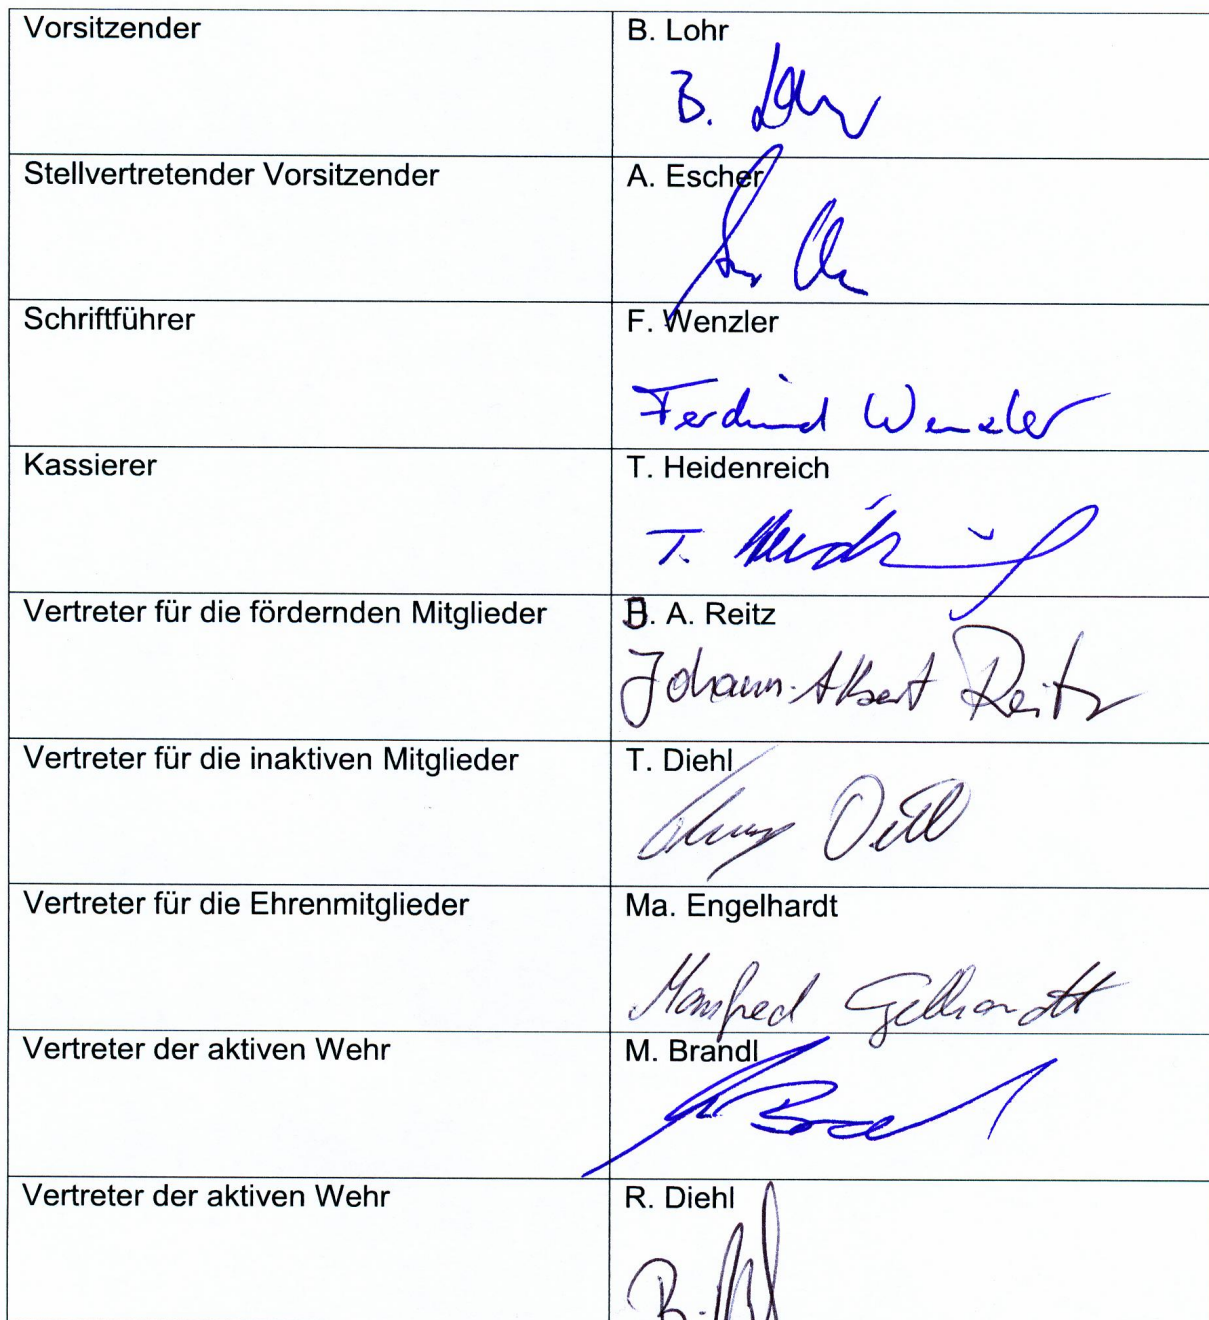 Vorsitzender
B. Lohr
B. Lohr
Stellvertretender Vorsitzender
A. Escher
Schriftführer
F. Wenzler
Ferdinand Wenzler
Kassierer
T. Heidenreich
T. Heidenreich
Vertreter für die fördernden Mitglieder
J. A. Reitz
Johann-Albert Reitz
Vertreter für die inaktiven Mitglieder
T. Diehl
Diehl
Vertreter für die Ehrenmitglieder
Ma. Engelhardt
Manfred Engelhardt
Vertreter der aktiven Wehr
M. Brandl
Vertreter der aktiven Wehr
R. Diehl